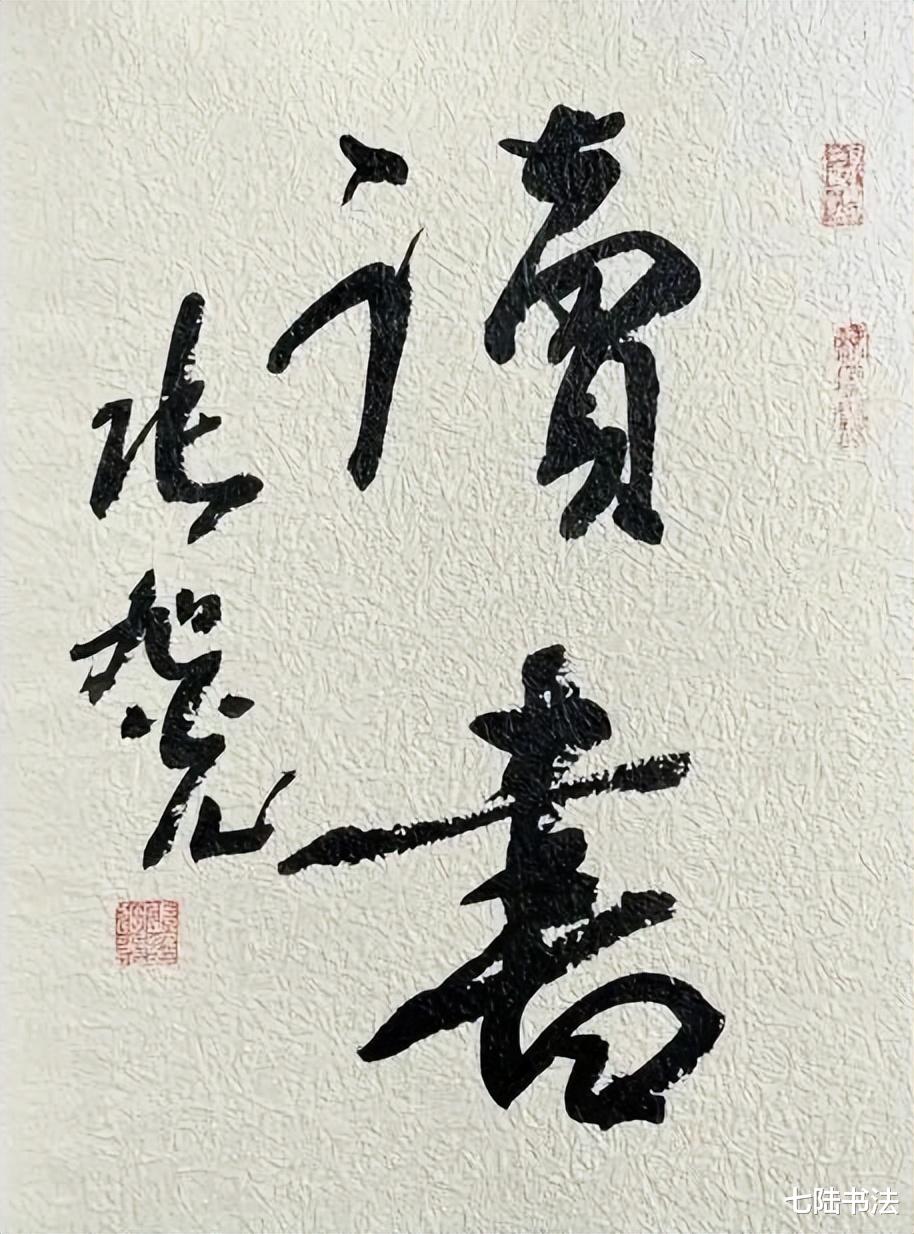 讀書
张旭光
七陆书法